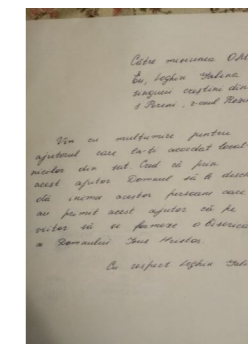 Către misiunea OM
Eu, Leghin Galina
singurii creștini din
s Pereni, r-onul Rezin
Vin cu mulțumire pentru
ajutorul care l-ați acordat locuit
nicilor din sat. Cred că prin
acest ajutor Domnul să le desch
dă inima acestor persoane care
au primit acest ajutor că pe
viitor să se formeze o Biserica
a Domnului Isus Hristos.
Cu respect Leghin Gali